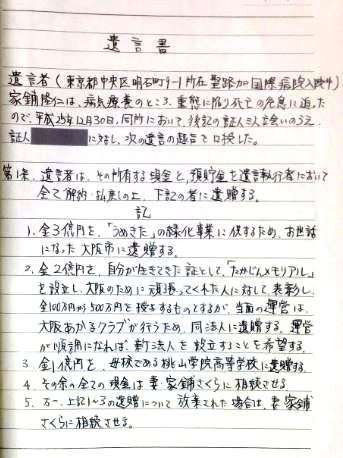 遺言書
遺言者(東京都中央区明石町9-1所在 聖路加国際病院入院中)
家鋪隆仁は、病気療養のところ、重態に陥り死亡の危急に迫った
ので、平成25年12月30日、同所において、後記の証人3人立会いのうえ、
証人 に対し、次の遺言の趣旨を口授した。
第1条、遺言者は、その所有する現金と、預貯金を遺言執行者において
全て解約・払戻しの上、下記の者に遺贈する。
記
1. 金3億円を、「うめきた」の緑化事業に供するため、お世話
になった大阪市に遺贈する。
2. 金2億円を、自分が生きてきた証として、「たかじんメモリアル」
を設立し、大阪のために頑張ってくれた人に対して、表彰し、
金100万円から500万円を授与するものとするが、当面の運営は、
大阪あかるクラブが行うため、同法人に遺贈する。運営
が順調になれば、新法人を設立することを希望する。
3. 金1億円を、母校である桃山学院高等学校に遺贈する。
4. その余の全ての現金は妻・家鋪さくらに相続させる。
5. 万一、上記1~3の遺贈について放棄された場合は、妻 家鋪
さくらに相続させる。